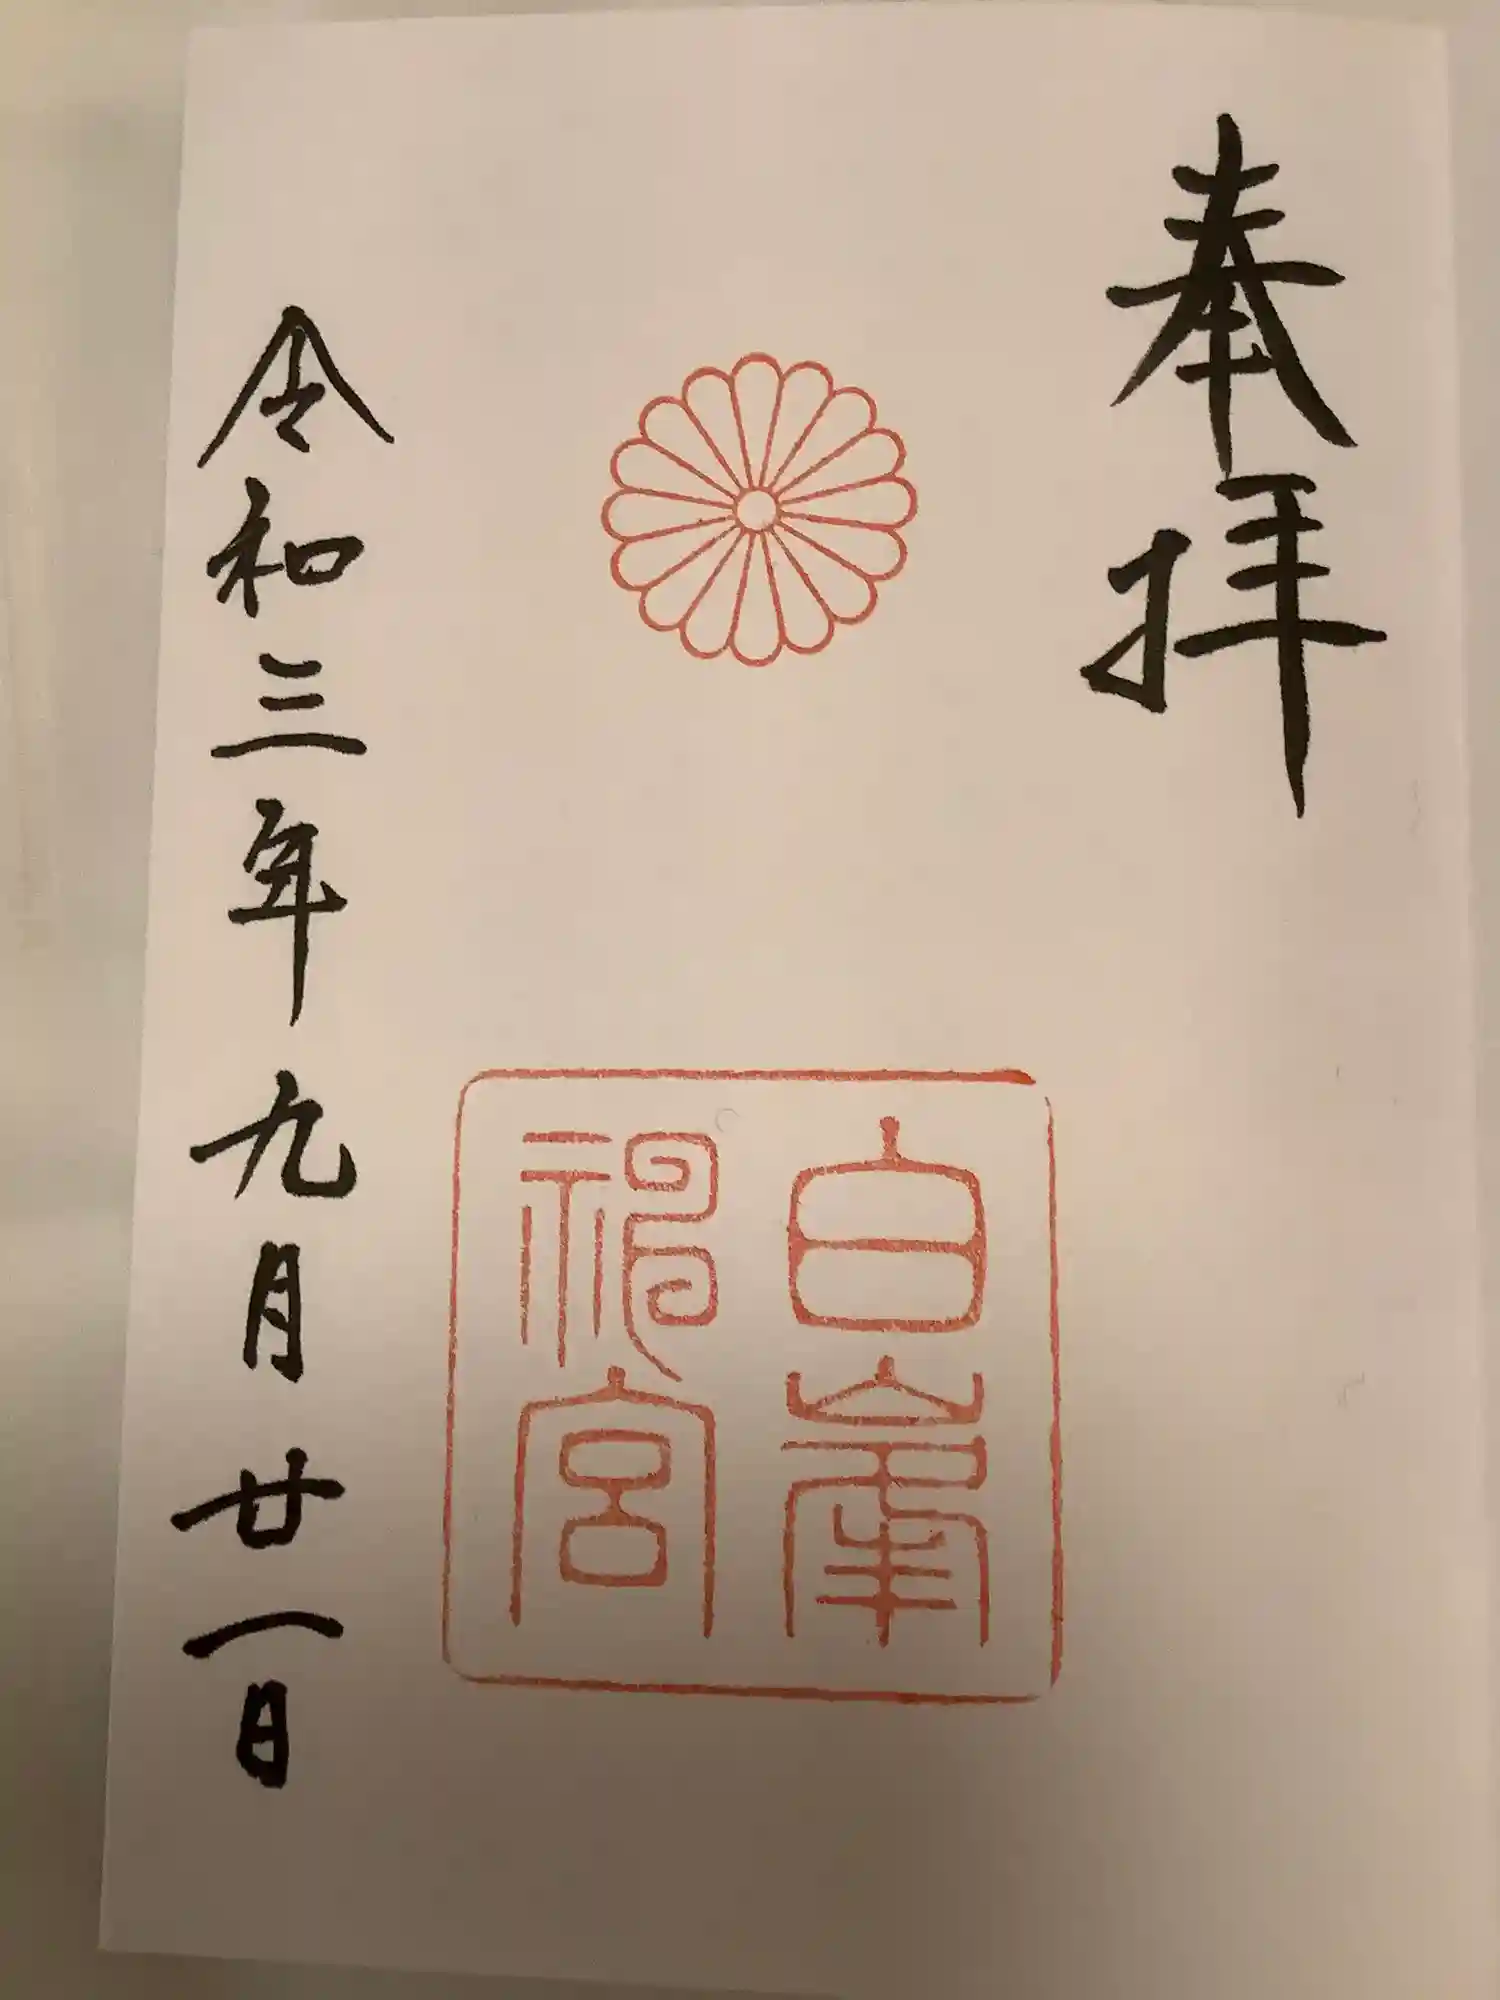 奉拝
白峯
神宮
令和三年九月廿一日